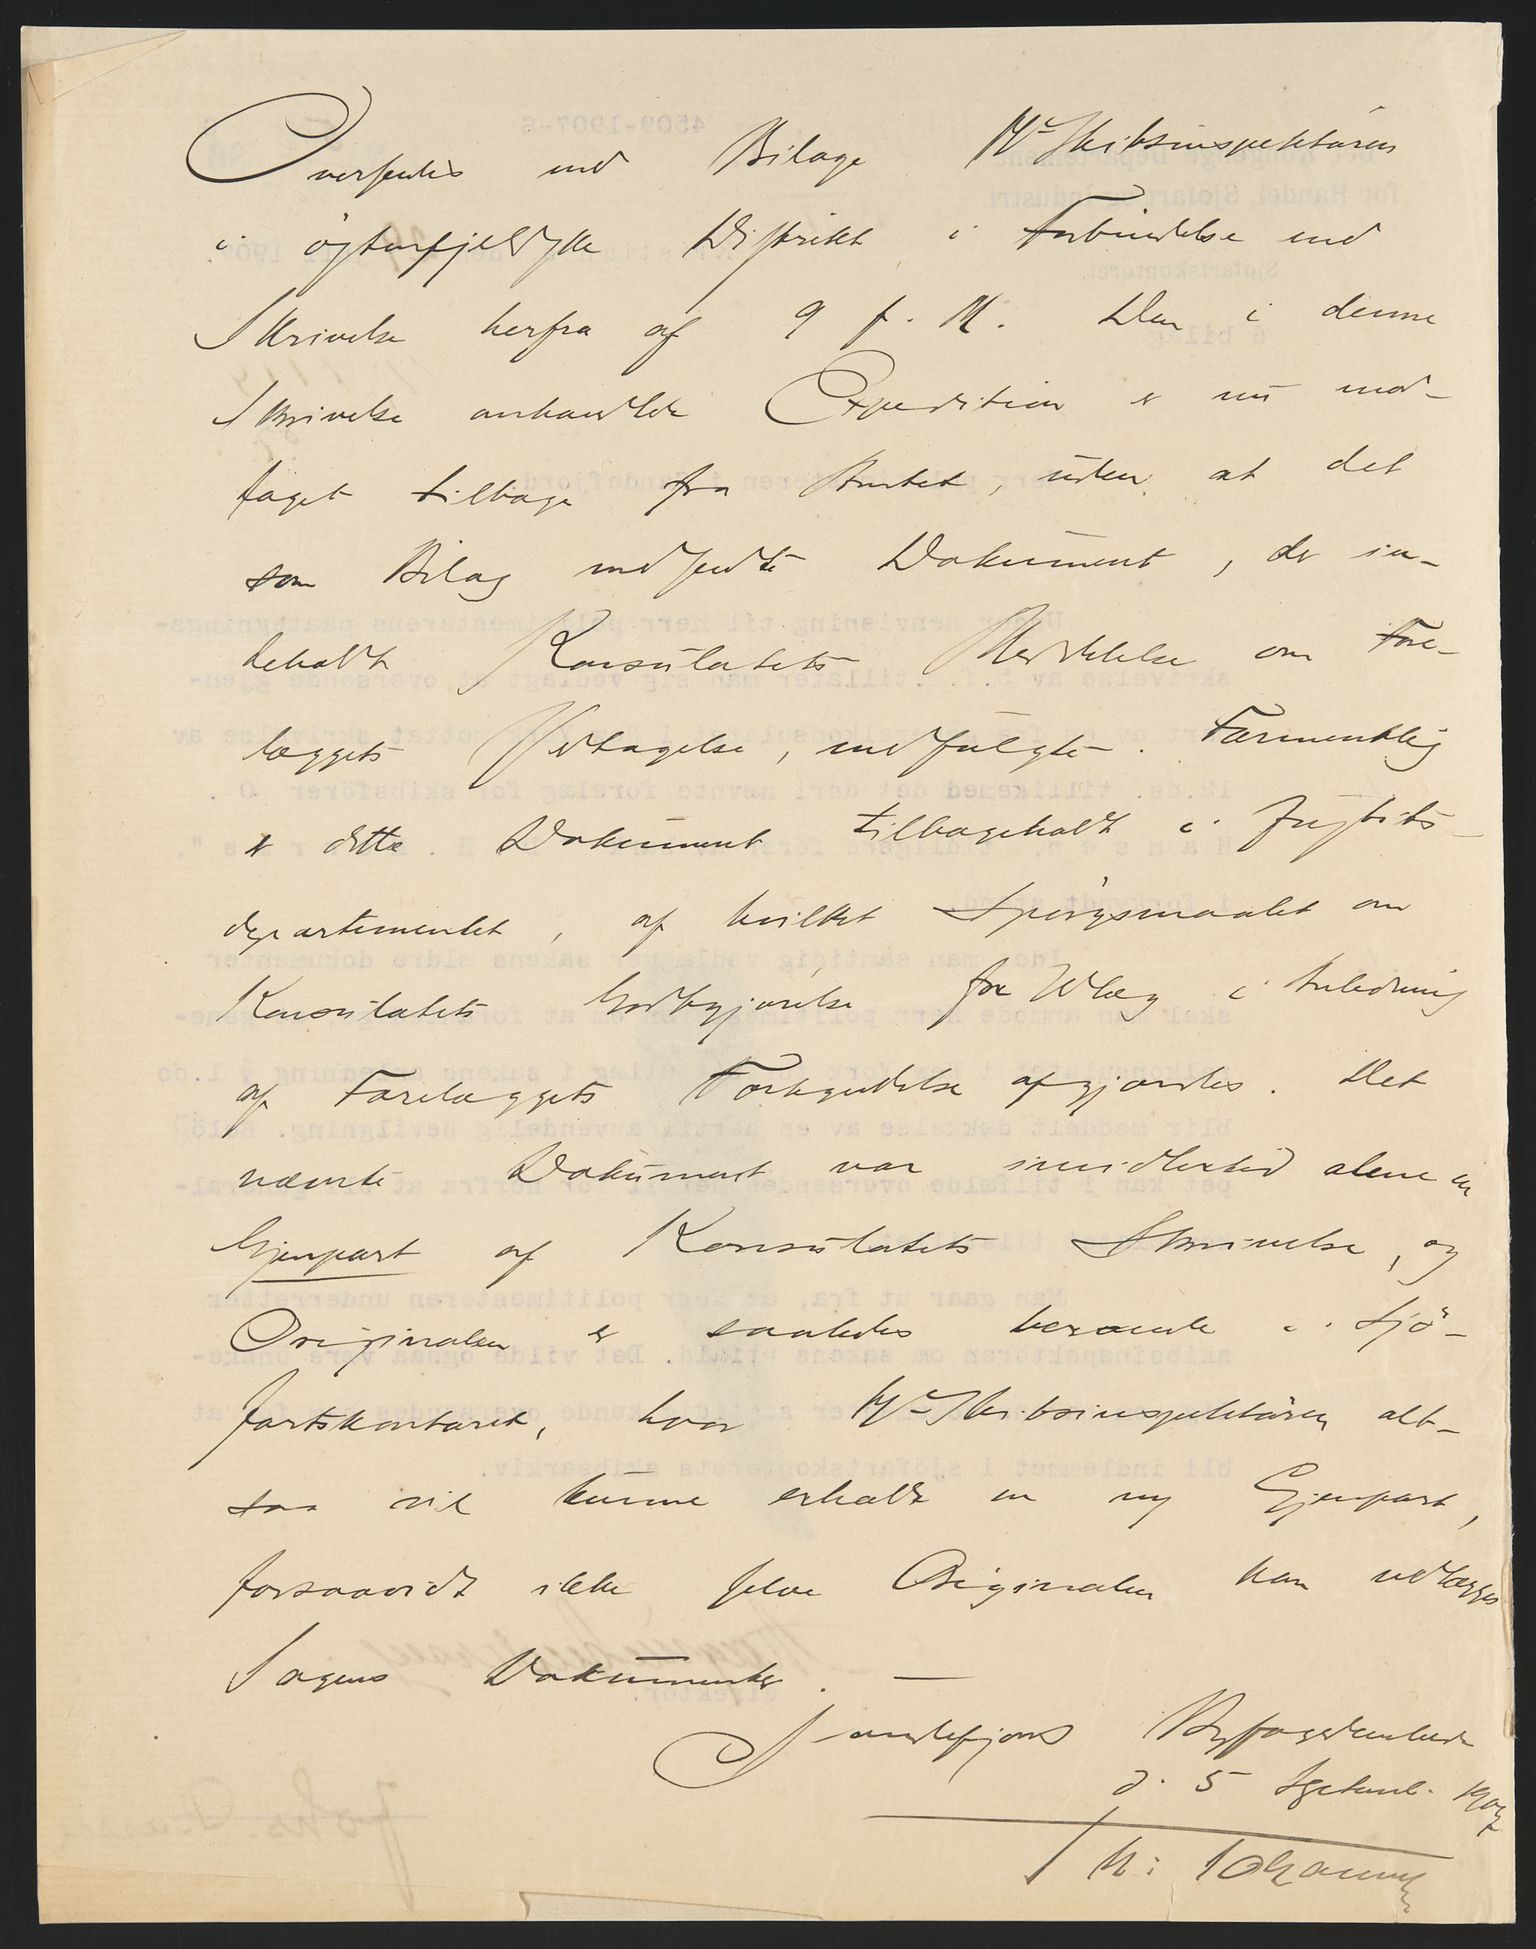 Oversendes med Bilage Hr Skibsinspektören
i östenfjeldske Distrikt i Forbindelse med
Skrivelse herfra af 9 f. M. Den i denne
Skrivelse omhandlede Expedition er nu mod-
taget tilbage fra, uden at det
som Bilag medsendte Dokument, der in-
deholdt Konsulatets Meddelelse om Fore-
læggets Vedtagelse, medfulgte. Formentlig
er dette Dokument tilbageholdt i Justits-
departementet, af hvilket Spörgsmaalet om
Konsulatets Godtgjörelse for Udlæg i Anledning
af Forelæggets Forkyndelse afgjordes. Det
nævnte Dokument var imidlertid alene en
Gjenpart af Konsulatets Skrivelse, og
Originalen er saaledes beroende i Sjö-
fartskontoret, hvor Hr Skibsinspektören alt-
saa vil kunne erholde en ny Gjenpart,
forsaavidt ikke selve Originalen kan vedlægges
Sagens Dokumenter. —
Sandefjords Byfogedembede
d. 5 Septemb. 1907